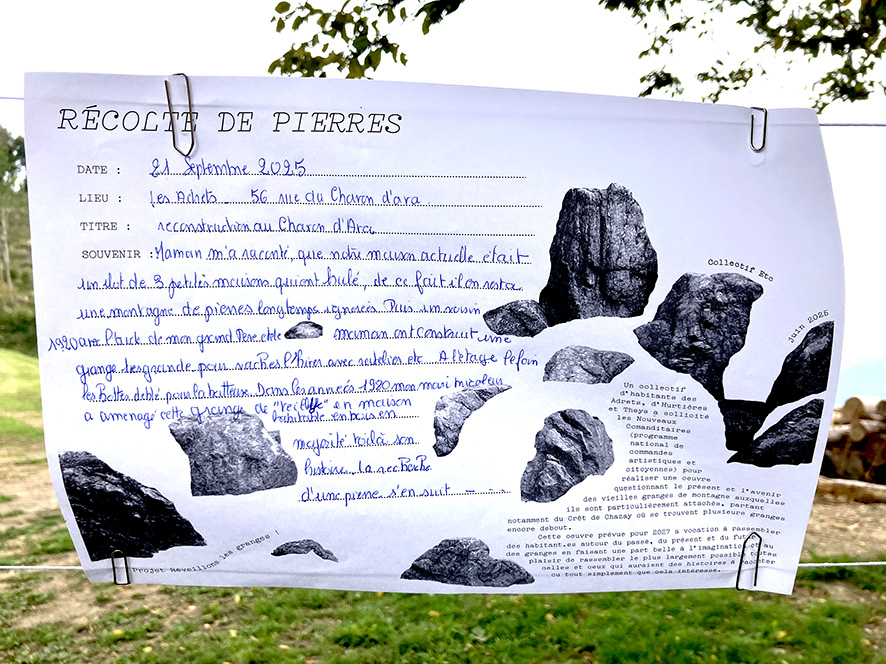 RÉCOLTE DE PIERRES
DATE : 21 Septembre 2025
LIEU : Les Adrets 56 rue du Charon d'ara
TITRE : reconstruction au Charon d'Ara
SOUVENIR : Maman m'a raconté, que notre maison actuelle était
un ilot de 3 petites maisons qui ont brulé, de ce fait il en resta
une montagne de pierres longtemps ignorées Puis un voisin
1920 avec l'aide de mon grand Père et de maman ont construit une
grange très grande pour vaches l'hiver avec ratelier etc A l'étage le foin
les bottes de blé pour la batteuse. Dans les années 1980 mon mari nicolau
a amenagé cette grange de "reille" en maison
habitable en bois en
majorité voilà son
histoire. La recherche
d'une pierre s'en suit
Collectif Etc
juin 2025
Un collectif
d'habitants des
Adrets, d'Hurtières
et Theys a sollicité
les Nouveaux
Commanditaires
(programme
national de
commandes
artistiques et
citoyennes) pour
réaliser une oeuvre
questionnant le présent et l'avenir
des vieilles granges de montagne auxquelles
ils sont particulièrement attachés, partant
notamment du Crêt de Chazay où se trouvent plusieurs granges
encore debout.
Cette oeuvre prévue pour 2027 a vocation à rassembler
des habitant.es autour du passé, du présent et du futur
des granges en faisant une part belle à l'imagination et au
plaisir de rassembler le plus largement possible toutes
celles et ceux qui auraient des histoires à raconter
ou tout simplement que cela intéresse.
Projet Réveillons les granges !